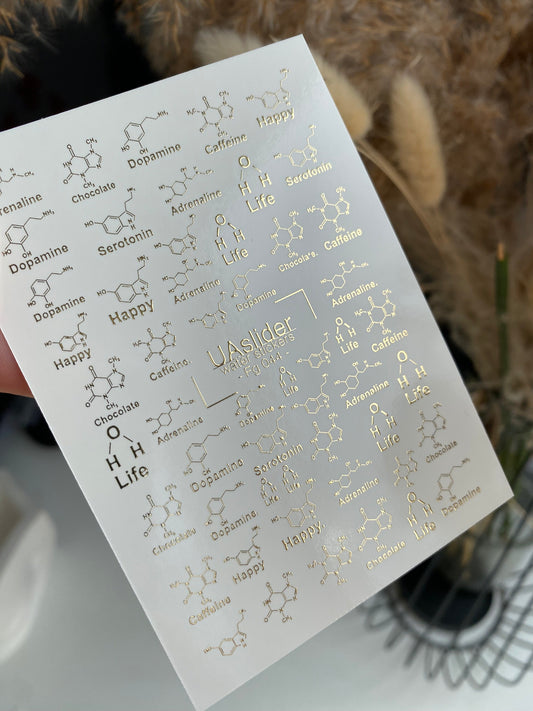 Happy
Caffeine
Dopamine
Chocolate
Adrenaline
Serotonin
Life
Adrenaline
Serotonin
Dopamine
Life
Caffeine
Chocolate.
Adrenaline
Happy
Dopamine
Dopamine
Adrenaline.
Life
Caffeine
UAslider
Happy
Caffeine
Chocolate
Dopamine
Life
Adrenaline
Life
Adrenaline
Life
Life
Serotonin
Dopamine
Chocolate
Adrenaline
Dopamine
Chocolate
Happy
Life
Dopamine
Chocolate
Happy
Caffeine